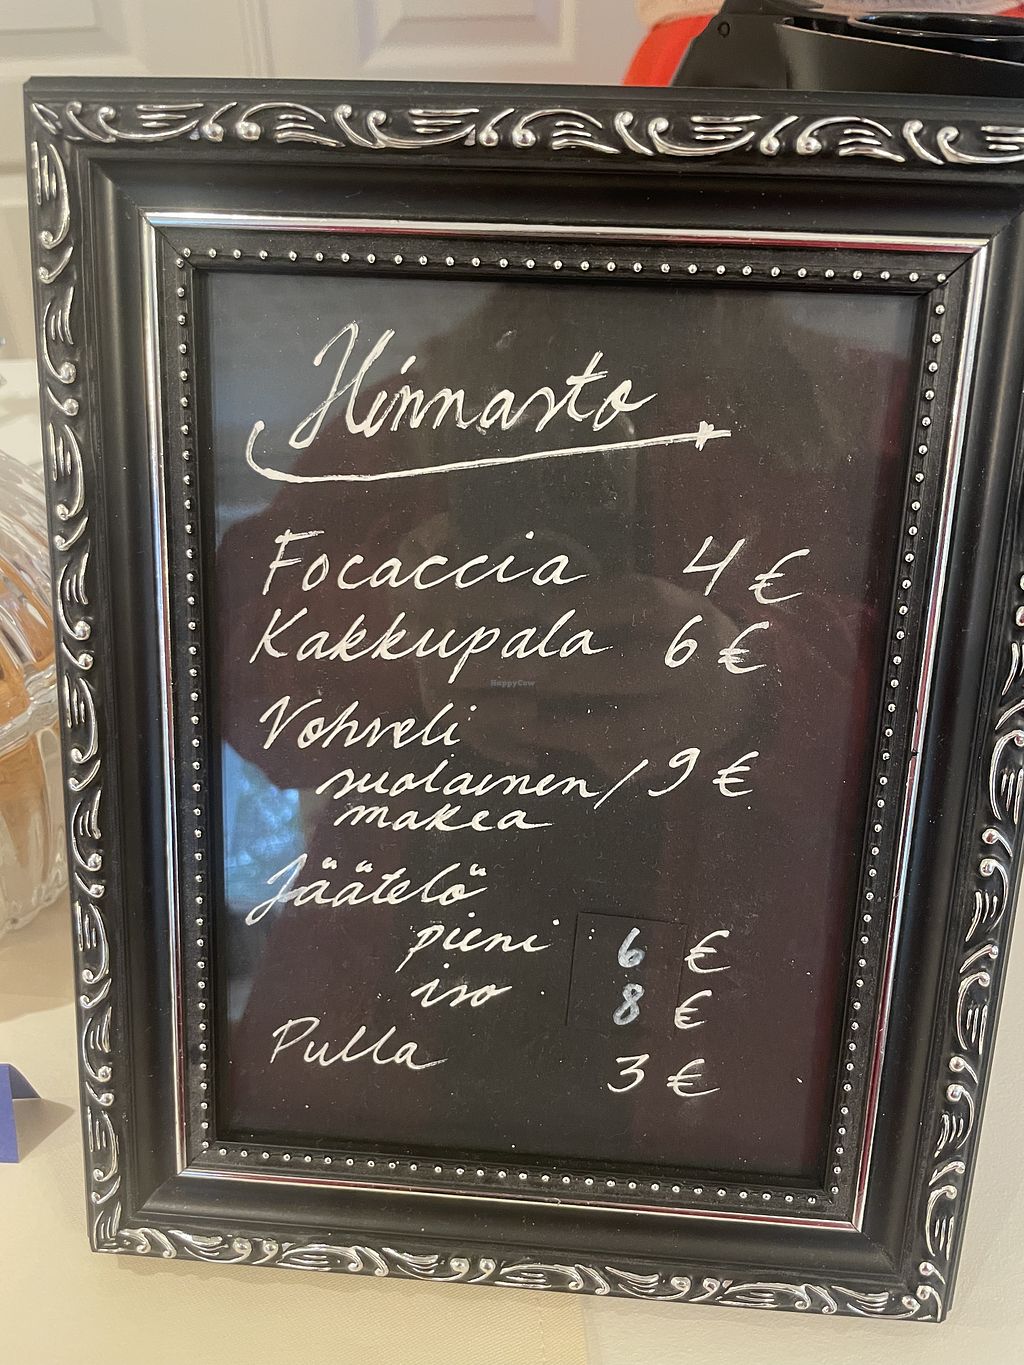 Hinnasto
Focaccia 4 €
Kakkupala 6 €
Vohveli
suolainen / 9 €
makea
Jäätelö
pieni 6 €
iso 8 €
Pulla 3 €
HappyCow